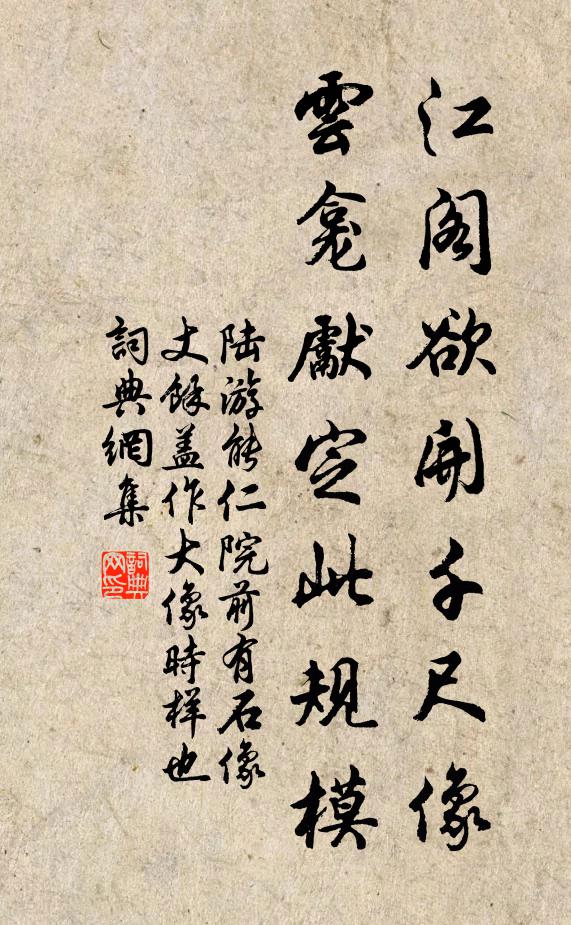 江阁欲開千尺像
雲龕獻定此規模
陆游能仁院前有石像
丈餘盖作大像時样也
詞典網集
詞典网印